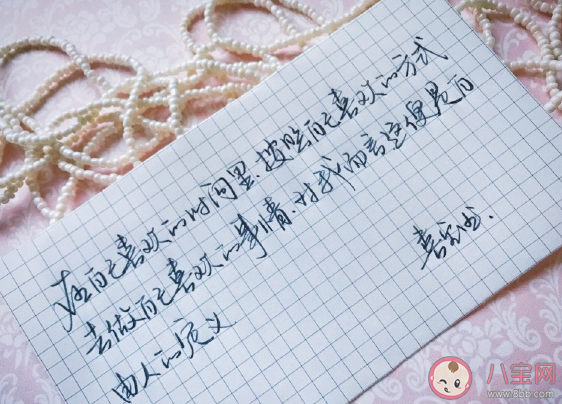 在自己喜欢的时间里、按照自己喜欢的方式
去做自己喜欢的事情、对我而言这便是自
由人的定义
八宝网
www.8bb.com